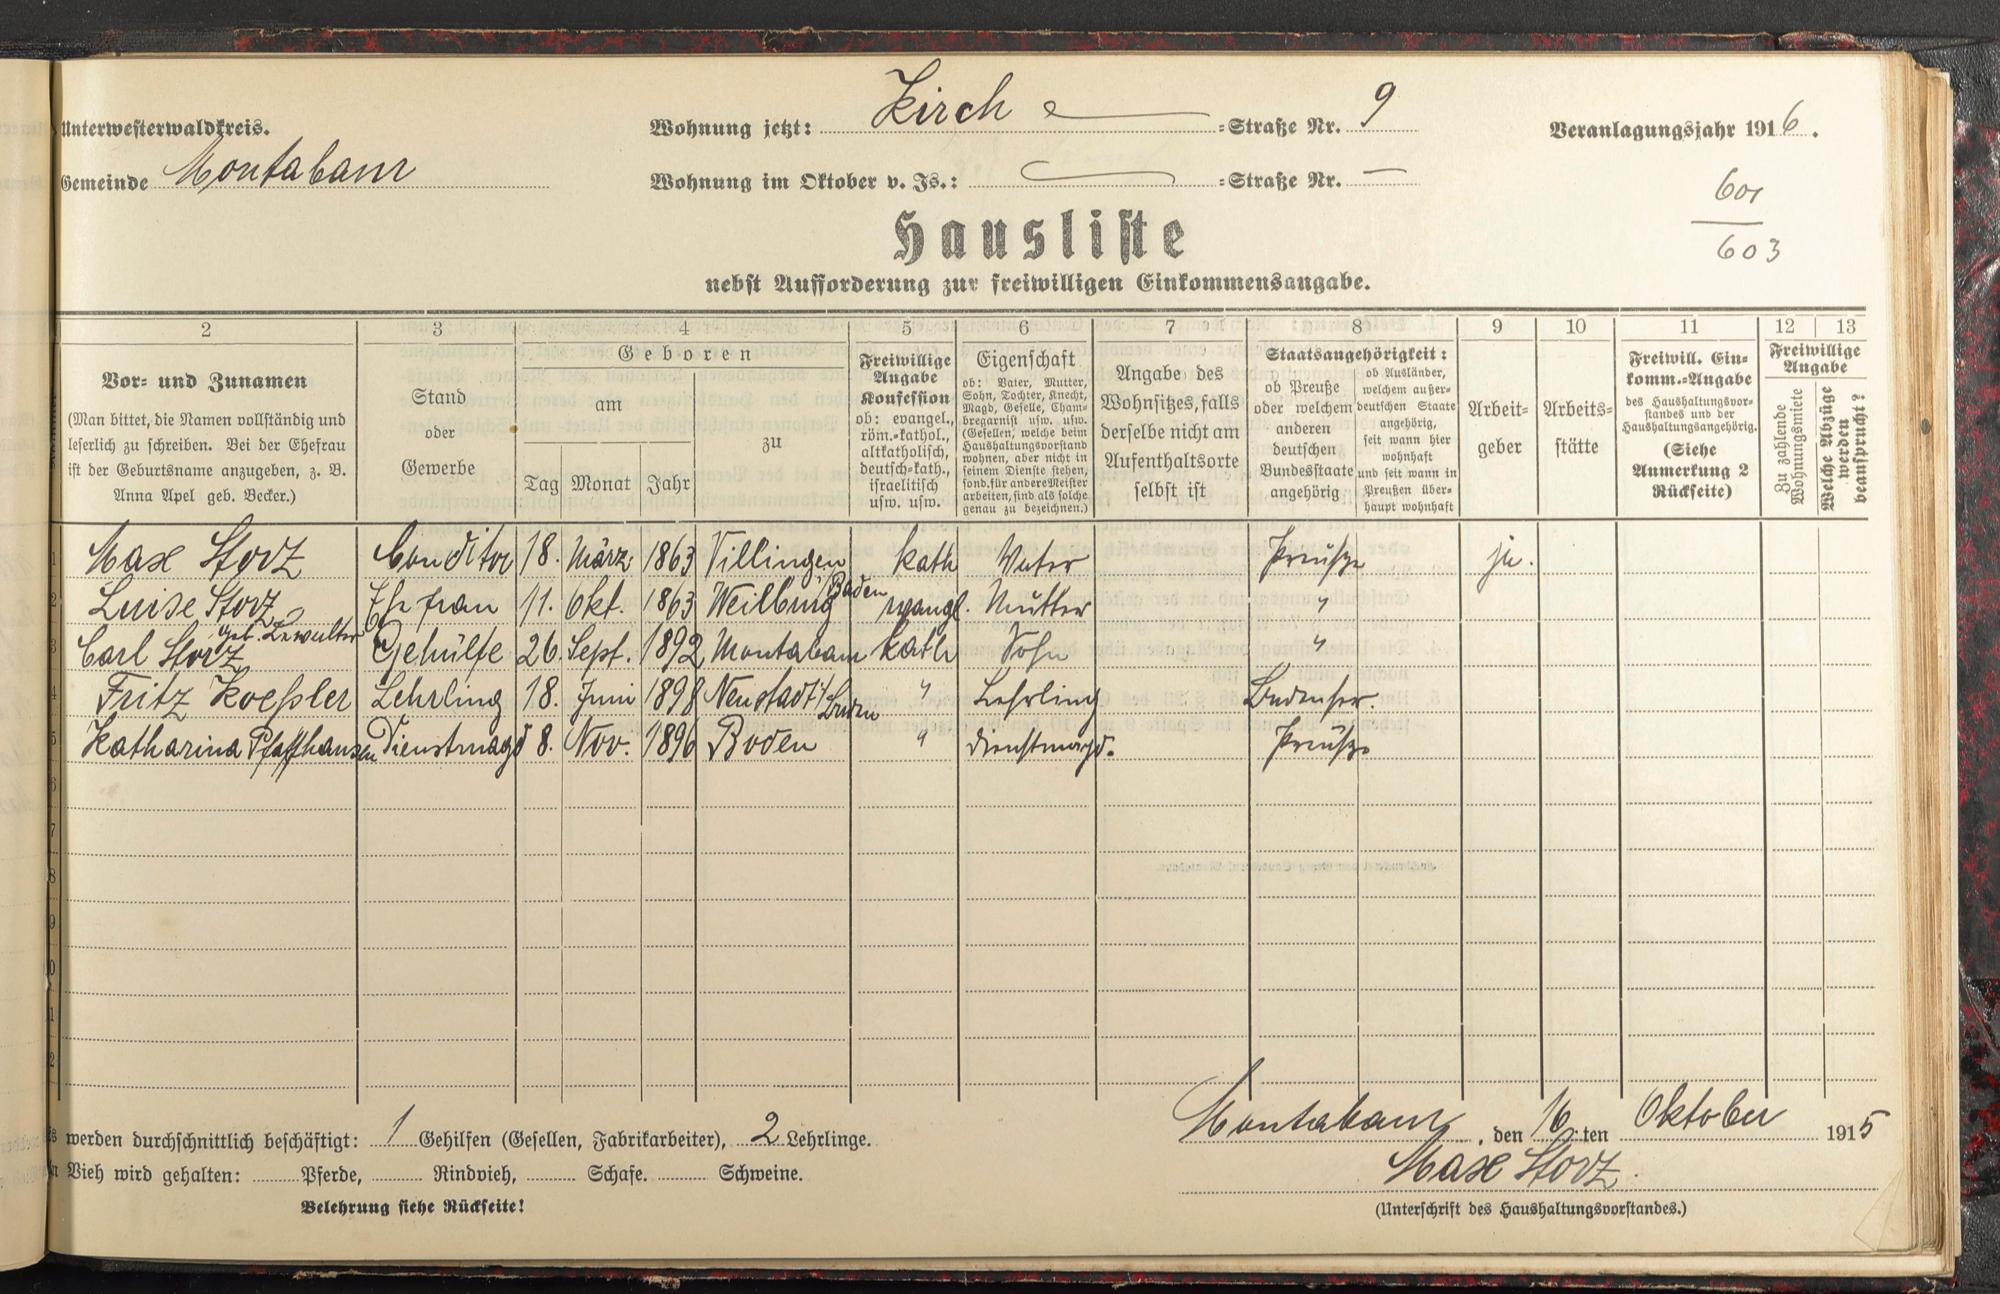 Unterwesterwaldkreis.
Wohnung jetzt: Kirch =Straße Nr. 9
Veranlagungsjahr 1916.
Gemeinde Montabaur
Wohnung im Oktober v. Js.: — =Straße Nr. —
601
603
Hausliste
nebst Aufforderung zur freiwilligen Einkommensangabe.
2 3 4 5 6 7 8 9 10 11 12 13
Vor- und Zunamen
(Man bittet, die Namen vollständig und
leserlich zu schreiben. Bei der Ehefrau
ist der Geburtsname anzugeben, z. B.
Anna Apel geb. Becker.)
Stand
oder
Gewerbe
Geboren
am
Tag Monat Jahr
zu
Freiwillige
Angabe
Konfession
ob: evangel.,
röm.-kathol.,
altkatholisch,
deutsch-kath.,
israelitisch
usw. usw.
Eigenschaft
ob: Vater, Mutter,
Sohn, Tochter, Knecht,
Magd, Geselle, Cham-
bregarnist usw. usw.
(Gesellen, welche beim
Haushaltungsvorstand
wohnen, aber nicht in
seinem Dienste stehen,
sond. für andere Meister
arbeiten, sind als solche
genau zu bezeichnen.)
Angabe des
Wohnsitzes, falls
derselbe nicht am
Aufenthaltsorte
selbst ist
Staatsangehörigkeit:
ob Preuße
oder welchem
anderen
deutschen
Bundesstaate
angehörig
ob Ausländer,
welchem außer-
deutschen Staate
angehörig,
seit wann hier
wohnhaft
und seit wann in
Preußen über-
haupt wohnhaft
Arbeit-
geber
Arbeits-
stätte
Freiwill. Ein-
komm.-Angabe
des Haushaltungsvor-
standes und der
Haushaltungsangehörig.
(Siehe
Anmerkung 2
Rückseite)
Freiwillige
Angabe
Zu zahlende
Wohnungsmiete
Welche Abzüge
werden
beansprucht?
1 Max Storz Conditor 18. März 1863 Villingen Baden kath Vater Preuße ja.
2 Luise Storz geb. Lewalter Ehefrau 11. Okt. 1863 Weilburg evangl. Mutter "
3 Carl Storz Gehülfe 26. Sept. 1892 Montabaur kath Sohn "
4 Fritz Koeßler Lehrling 18. Juni 1898 Neustadt i/Baden " Lehrling Badenser.
5 Katharina Pfaffhausen Dienstmagd 8. Nov. 1896 Boden " Dienstmagd. Preuße
6
7
8
9
0
1
2
werden durchschnittlich beschäftigt: 1 Gehilfen (Gesellen, Fabrikarbeiter), 2 Lehrlinge.
Vieh wird gehalten: Pferde, Rindvieh, Schafe. Schweine.
Belehrung siehe Rückseite!
Montabaur, den 16ten Oktober 1915
Max Storz.
(Unterschrift des Haushaltungsvorstandes.)